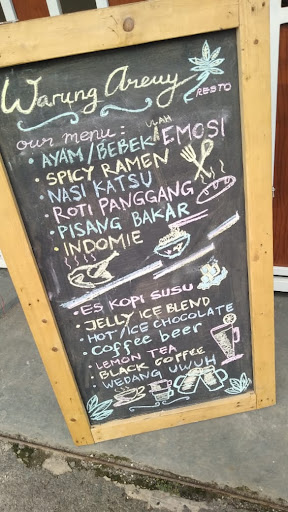 Warung Areuy
RESTO
our menu :
• AYAM/BEBEK ULAH EMOSI
• SPICY RAMEN
• NASI KATSU
• ROTI PANGGANG
• PISANG BAKAR
• INDOMIE
• ES KOPI SUSU
• JELLY ICE BLEND
• HOT/ICE CHOCOLATE
• coffee beer
• LEMON TEA
• BLACK COFFEE
• WEDANG UWUH